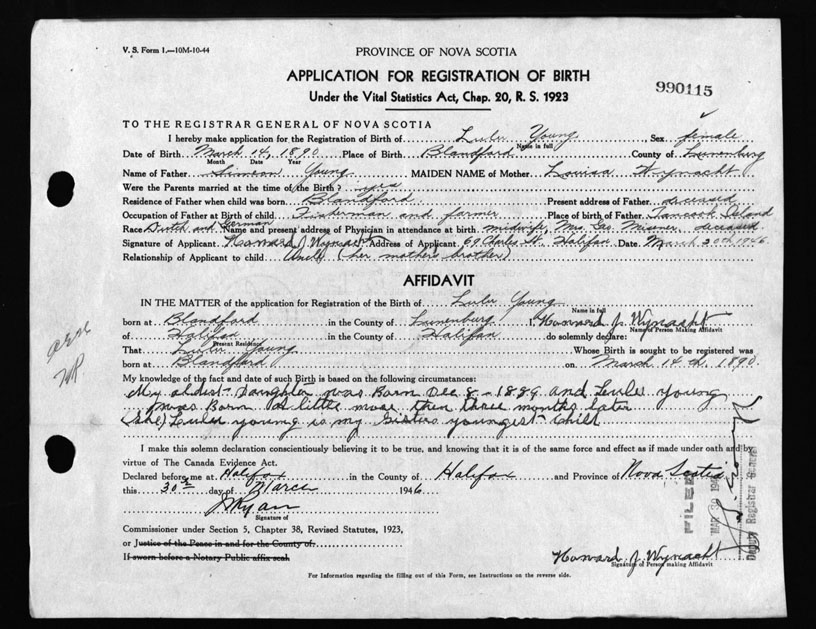 V. S. Form 1.—10M-10-44
PROVINCE OF NOVA SCOTIA
APPLICATION FOR REGISTRATION OF BIRTH
990115
Under the Vital Statistics Act, Chap. 20, R. S. 1923
TO THE REGISTRAR GENERAL OF NOVA SCOTIA
I hereby make application for the Registration of Birth of Lulu Young Sex female
Name in full
Date of Birth March 14, 1890 Place of Birth Blandford County of Lunenburg
Month Date Year
Name of Father Simeon Young MAIDEN NAME of Mother Louisa Wynacht
Were the Parents married at the time of the Birth? yes
Residence of Father when child was born Blandford Present address of Father deceased
Occupation of Father at Birth of child Fisherman and farmer Place of birth of Father Tancook Island
Race Dutch and German Name and present address of Physician in attendance at birth midwife, Mrs. Geo. Misener, deceased
Signature of Applicant Howard J Wynacht Address of Applicant 68 Charles St. Halifax Date March 30th 1946
Relationship of Applicant to child Uncle (her mother's brother)
AFFIDAVIT
IN THE MATTER of the application for Registration of the Birth of Lulu Young
Name in full
born at Blandford in the County of Lunenburg I, Howard J. Wynacht
Name of Person Making Affidavit
of Halifax in the County of Halifax do solemnly declare:
Present Residence
That Lulu Young Whose Birth is sought to be registered was
born at Blandford on March 14th, 1890
My knowledge of the fact and date of such Birth is based on the following circumstances:
My oldest Daughter was Born Dec 8 - 1889 and Lulu young
was Born a little more then three months later
(She) Lulu young is my Sisters youngest child
I make this solemn declaration conscientiously believing it to be true, and knowing that it is of the same force and effect as if made under oath and by
virtue of The Canada Evidence Act.
Declared before me at Halifax in the County of Halifax and Province of Nova Scotia
this 30th day of March 1946
Signature of
Commissioner under Section 5, Chapter 38, Revised Statutes, 1923,
or Justice of the Peace in and for the County of
If sworn before a Notary Public affix seal
Howard J. Wynacht
Signature of Person making Affidavit
For Information regarding the filling out of this Form, see Instructions on the reverse side.
FILED
MAR 30 194
Deputy Registrar General